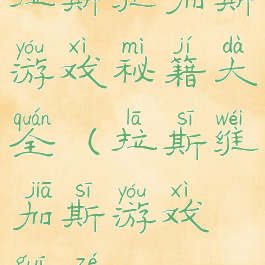 斯 加斯
yóu xì mì jí dà
游戏秘籍大
quán lā sī wéi
全（拉斯维
jiā sī yóu xì
加斯游戏
guī zé